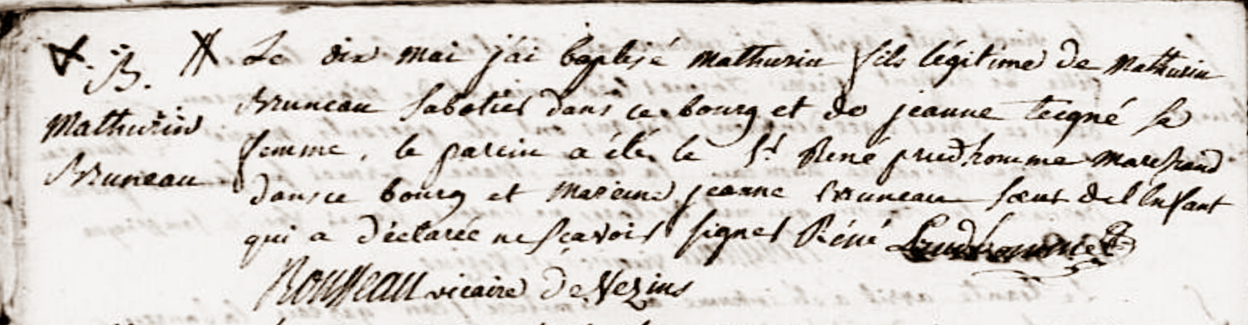 B.
Mathurin
Bruneau
Le dix mai j'ai baptisé mathurin fils légitime de mathurin
Bruneau Sabotier dans ce bourg et de jeanne teigné sa
femme, le parein a été le Sr René prudhomme marchand
dans ce bourg et mareine jeanne bruneau soeur de l'enfant
qui a déclarée ne sçavoir signer Réné Prudhomme
Rousseau vicaire de Vezins